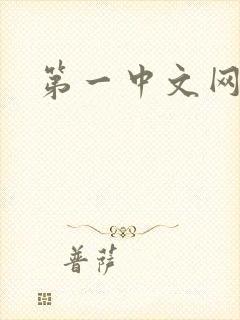 第一中文网
普萨